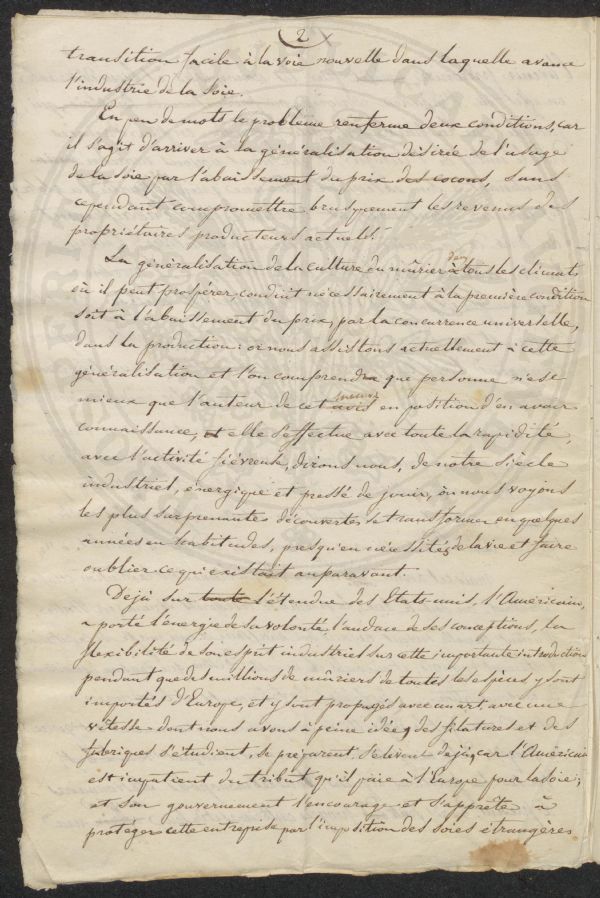 2
transition facile à la voie nouvelle dans laquelle avance
l'industrie de la soie.
En peu de mots le problème renferme deux conditions, car
il s'agit d'arriver à la généralisation désirée de l'usage
de la soie par l'abaissement du prix des cocons, sans
cependant compromettre brusquement les revenus des
propriétaires producteurs actuels.
La généralisation de la culture du mûrier dans tous les climats
où il peut prospérer, conduit nécessairement à la première condition
soit à l'abaissement du prix, par la concurrence universelle,
dans la production : or nous assistons actuellement à cette
généralisation et l'on comprendra que personne n'est
mieux que l'auteur de cet avis en position d'en avoir
connaissance, et elle s'effectue avec toute la rapidité,
avec l'activité fiévreuse, dirons nous, de notre siècle
industriel, énergique et pressé de jouir, où nous voyons
les plus surprenantes découvertes se transformer en quelques
années en habitudes, presqu'en nécessités de la vie et faire
oublier ce qui existait auparavant.
Dejà sur toute l'étendue des Etats-unis, l'Américain,
a porté l'énergie de sa volonté l'audace de ses conceptions, la
flexibilité de son esprit industriel sur cette importante introduction
pendant que des millions de mûriers de toutes les espèces y sont
importés d'Europe, et y sont propagés avec un art avec une
vitesse dont nous avons à peine idée, des filatures et des
fabriques s'étudient, se préparent, s'élèvent dejà, car l'Américain
est impatient du tribut qu'il paie à l'Europe pour la soie ;
et son gouvernement l'encourage et s'apprête à
protéger cette entreprise par l'imposition des soies étrangères